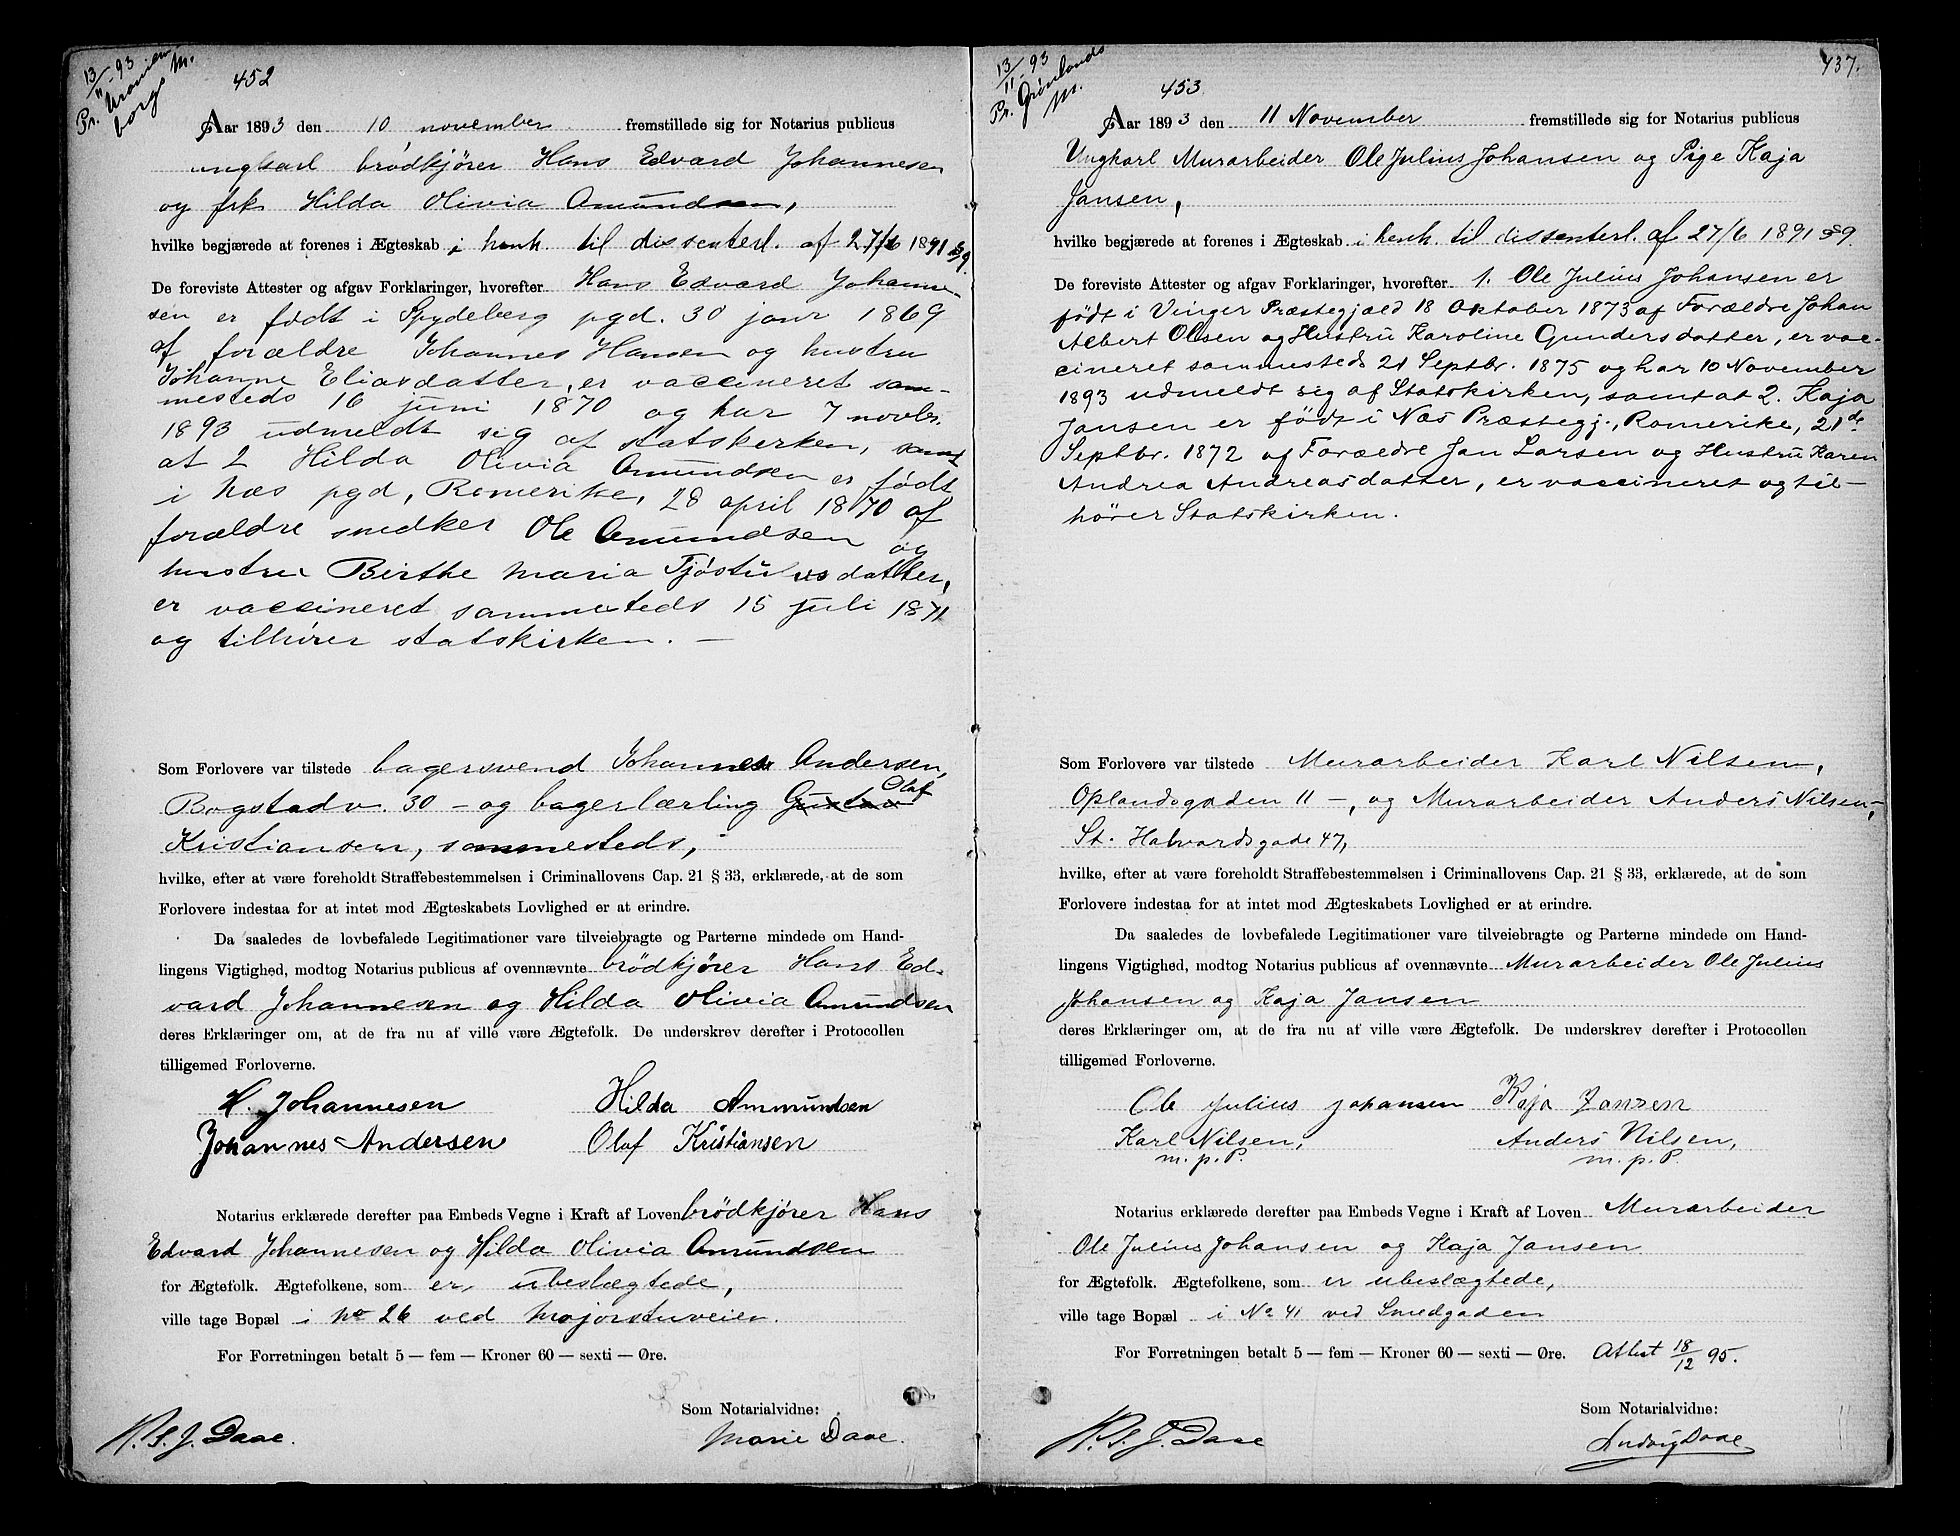 13/11-93
Pr. Uranien
borgs M.
452
Aar 1893 den 10 november fremstillede sig for Notarius publicus
ungkarl brödkjörer Hans Edvard Johannesen
og frk Hilda Olivia Amundsen,
hvilke begjærede at forenes i Ægteskab i henh. til dissenterl. af 27/6 1891 § 9.
De foreviste Attester og afgav Forklaringer, hvorefter Hans Edvard Johanne-
sen er født i Spydeberg pgd. 30 janr 1869
af forældre Johannes Hansen og hustru
Johanne Eliasdatter, er vaccineret sam-
mesteds 16 juni 1870 og har 7 novbr.
1893 udmeldt sig af statskerken, samt
at 2 Hilda Olivia Amundsen er født
i næs pgd, Romerike, 28 april 1870 af
forældre snedker Ole Amundsen og
hustru Birthe Maria Tjöstulsdatter,
er vaccineret sammesteds 15 juli 1871
og tilhører statskirken. —
Som Forlovere var tilstede bagersvend Johannes Andersen,
Bogstadv. 30 - og bagerlærling Gustav Olaf
Kristiansen, sammesteds,
hvilke, efter at være foreholdt Straffebestemmelsen i Criminallovens Cap. 21 § 33, erklærede, at de som
Forlovere indestaa for at intet mod Ægteskabets Lovlighed er at erindre.
Da saaledes de lovbefalede Legitimationer vare tilveiebragte og Parterne mindede om Hand-
lingens Vigtighed, modtog Notarius publicus af ovennævnte brödkjörer Hans Ed-
vard Johannesen og Hilda Olivia Amundsen
deres Erklæringer om, at de fra nu af ville være Ægtefolk. De underskrev derefter i Protocollen
tilligemed Forloverne.
H. Johannesen Hilda Ammundsen
Johannes Andersen Olaf Kristiansen
Notarius erklærede derefter paa Embeds Vegne i Kraft af Loven brödkjörer Hans
Edvard Johannesen og Hilda Olivia Amundsen
for Ægtefolk. Ægtefolkene, som er ubeslægtede,
ville tage Bopæl i No 26 ved Majorstuveien.
For Forretningen betalt 5 — fem — Kroner 60 — sexti — Øre.
Som Notarialvidne:
Marie Daae.
Daae.
437.
13/11-93
Pr. Grønlands
M.
453
Aar 1893 den 11 November fremstillede sig for Notarius publicus
Ungkarl Murarbeider Ole Julius Johansen og Pige Kaja
Jansen,
hvilke begjærede at forenes i Ægteskab i henh. til dissenterl. af 27/6 1891 § 9.
De foreviste Attester og afgav Forklaringer, hvorefter 1. Ole Julius Johansen er
født i Vinger Præstegjæld 18 Oktober 1873 af Forældre Johan
Albert Olsen og Hustru Karoline Gundersdatter, er vac-
cineret sammesteds 21 Septbr. 1875 og har 10 November
1893 udmeldt sig af Statskirken, samt at 2. Kaja
Jansen er født i Næs Præstegj., Romerike, 21de
Septbr. 1872 af Forældre Jan Larsen og Hustru Karen
Andrea Andreasdatter, er vaccineret og til-
hører Statskirken.
Som Forlovere var tilstede Murarbeider Karl Nilsen,
Oplandsgaden 11 -, og Murarbeider Anders Nilsen,
St. Halvardsgade 47,
hvilke, efter at være foreholdt Straffebestemmelsen i Criminallovens Cap. 21 § 33, erklærede, at de som
Forlovere indestaa for at intet mod Ægteskabets Lovlighed er at erindre.
Da saaledes de lovbefalede Legitimationer vare tilveiebragte og Parterne mindede om Hand-
lingens Vigtighed, modtog Notarius publicus af ovennævnte Murarbeider Ole Julius
Johansen og Kaja Jansen
deres Erklæringer om, at de fra nu af ville være Ægtefolk. De underskrev derefter i Protocollen
tilligemed Forloverne.
Ole Julius Johansen Kaja Jansen
Karl Nilsen, Anders Nilsen,
m. p. P. m. p. P.
Notarius erklærede derefter paa Embeds Vegne i Kraft af Loven Murarbeider
Ole Julius Johansen og Kaja Jansen
for Ægtefolk. Ægtefolkene, som er ubeslægtede,
ville tage Bopæl i No 41 ved Smedgaden
For Forretningen betalt 5 — fem — Kroner 60 — sexti — Øre. Attest 18/12 95.
Som Notarialvidne:
Ludvig Daae
Daae